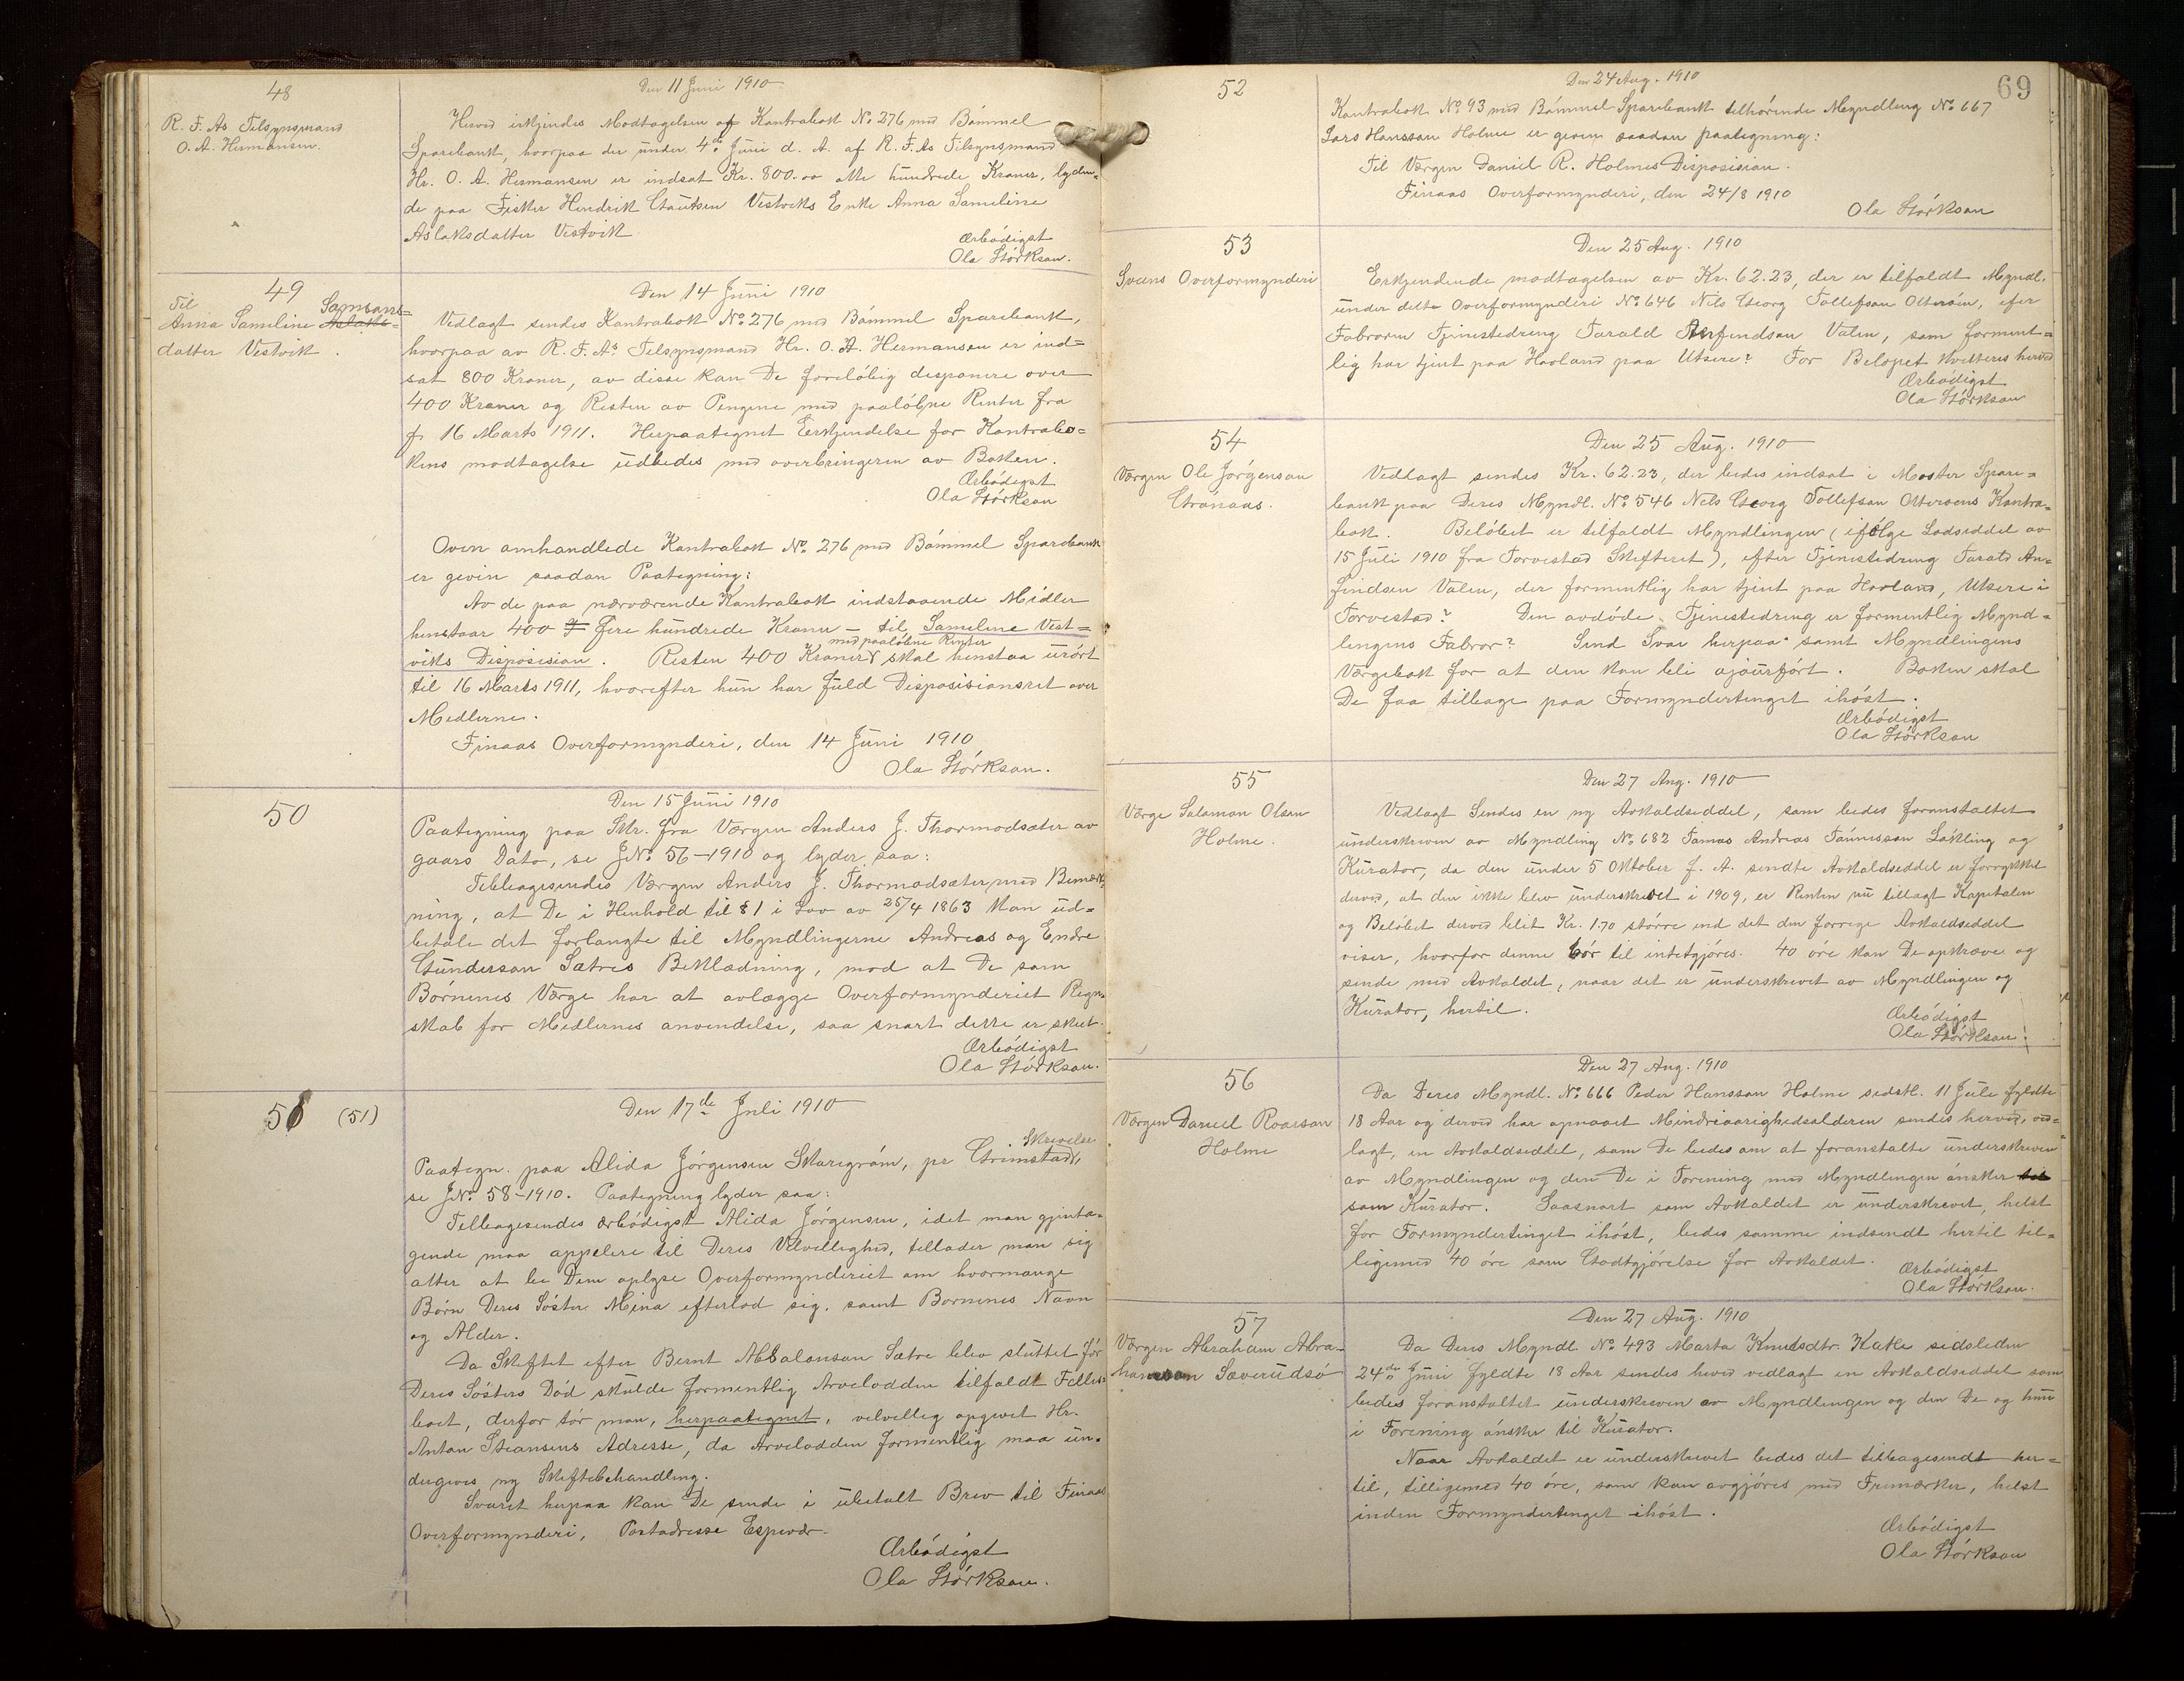 48
R. F. As Tilsynsmand
O. A. Hermansen.
Den 11 Juni 1910
Herved erkjendes Modtagelsen af Kontrabok No 276 med Bømmel
Sparebank, hvorpaa der under 4de Juni d. A. af R. F. As Tilsynsmand
Hr. O. A. Hermansen er indsat Kr. 800.00 otte hundrede Kroner, lyden-
de paa Fisker Hendrik Gautsen Vestviks Enke Anna Sameline
Aslaksdatter Vestvik
Ærbødigst
Ola Størkson.
49
Til
Anna Sameline Samsons-
datter Vestvik.
Den 14 Juni 1910
Vedlagt sendes Kontrabok No 276 med Bømmel Sparebank,
hvorpaa av R. F. As Tilsynsmand Hr. O. A. Hermansen er ind-
sat 800 Kroner, av disse kan De foreløbig disponere over
400 Kroner og Resten av Pengene med paaløbne Renter fra
16 Marts 1911. Herpaategnet Erkjendelse for Kontrabo-
kens modtagelse udbedes med overbringeren av Boken.
Ærbødigst
Ola Størkson
Oven omhandlede Kontrabok No. 276 med Bømmel Sparebank
er given saadan Paategning:
Av de paa nærværende Kontrabok indstaaende Midler
henstaar 400 Fire hundrede Kroner – til Sameline Vest-
viks Disposision. Resten 400 Kroner med paaløbne Renter skal henstaa urørt
til 16 Marts 1911, hvorefter hun har fuld Disposisionsret over
Medlerne.
Finaas Overformynderi, den 14 Juni 1910
Ola Størkson.
50
Den 15 Juni 1910
Paategning paa Skr. fra Værgen Anders J. Thormodsæter av
gaars Dato, se JNo 56-1910 og lyder saa:
Tilbagesendes Værgen Anders J. Thormodsæter, med Bemærk-
ning, at De i Henhold til § 1 i Lov av 25/4 1863 kan ud-
betale det forlangte til Myndlingerne Andreas og Endre
Gunderson Sætres Beklædning, mod at De som
Børnenes Værge har at avlægge Overformynderiet Regn-
skab for Medlernes anvendelse, saa snart dette er skeet.
Ærbødigst
Ola Størkson.
51 (51)
Den 17de Juli 1910
Paategn. paa Alida Jørgensen Skaregrøm, pr Grimstad Skrivelse,
se JNo. 58-1910. Paategning lyder saa:
Tilbagesendes ærbødigst Alida Jørgensen, idet man gjenta-
gende maa appelere til Deres Velvillighed, tillader man sig
atter at be Dem oplyse Overformynderiet om hvormange
Børn Deres Søster Mina efterlod sig, samt Børnenes Navn
og Alder.
Da Skiftet efter Bernt Absalonson Sætre blev sluttet før
Deres Søsters Død skulde formentlig Arvelodden tilfaldt Felles-
boet, derfor tør man, herpaategnet, velvillig opgivet Hr.
Anton Adresse, da Arvelodden formentlig maa un-
dergives ny Skiftebehandling.
Svaret herpaa kan De sende i ubetalt Brev til Finaas
Overformynderi, Postadresse Espevær.
Ærbødigst
Ola Størkson.
69
52
Den 24 Aug. 1910
Kontrabok No 93 med Bømmel Sparebank tilhørende Myndling No 667
Lars Hansson Holme er given saadan paategning:
Til Værgen Daniel R. Holmes Disposision.
Finaas Overformynderi, den 24/8 1910
Ola Størkson
53
Sveens Overformynderi
Den 25 Aug. 1910
Erkjendende modtagelsen av Kr. 62.23, der er tilfaldt Myndl.
under dette Overformynderi No 646 Nels Georg Tollefson Ottersøen, efter
Fabroren Tjenestedreng Tarald Anfindson Valen, som forment-
lig har tjent paa Hovland paa Utsere? For Beløpet kvitteres herved
Ærbødigst
Ola Størkson
54
Værgen Ole Jørgenson
Grønaas.
Den 25 Aug. 1910
Vedlagt sendes Kr. 62.23, der bedes indsat i Moster Spare-
bank paa Deres Myndl. No 546 Nels Georg Tollefson Ottersøens Kontra-
bok. Beløbet er tilfaldt Myndlingen (ifølge Lodseddel av
15 Juli 1910 fra Torvestad Skifteret), efter Tjenestedreng Tarald An-
findsen Valen, der formentlig har tjent paa Hovland, Utsere i
Torvestad? Den avdøde Tjenestedreng er formentlig Mynd-
lingens Fabror? Send Svar herpaa samt Myndlingens
Værgebok for at den kan bli ajourført. Boken skal
De faa tilbage paa Formyndertinget ihøst.
Ærbødigst
Ola Størkson
55
Værge Salamon Olson
Holme.
Den 27 Aug. 1910
Vedlagt Sendes en ny Avkaldseddel, som bedes foranstaltet
underskreven av Myndling No 682 Tomas Andreas Tønneson Løkling og
Kurator, da den under 5 Oktober f. A. sendte Avkaldseddel er forrykket
derved, at den ikke blev underskrevet i 1909, er Renten nu tillagt Kapitalen
og Beløbet derved blit Kr. 1.70 større end det den forrige Avkaldseddel
viser, hvorfor denne bør til intetgjøres. 40 øre kan De opkræve og
sende med Avkaldet, naar det er underskrevet av Myndlingen og
Kurator, hertil.
Ærbødigst
Ola Størkson.
56
Værgen Daniel Roarson
Holme
Den 27 Aug. 1910
Da Deres Myndl. No 666 Peder Hansson Holme sidstl. 11 Jule fyldte
18 Aar og derved har opnaaet Mindreaarighedsalderen sendes herved, ved-
lagt, en Avkaldseddel, som De bedes om at foranstalte underskreven
av Myndlingen og den De i Forening med Myndlingen ønsker
som Kurator. Saasnart som Avkaldet er underskrevet, helst
før Formyndertinget ihøst, bedes samme indsendt hertil til-
ligemed 40 øre som Godtgjørelse for Avkaldet.
Ærbødigst
Ola Størkson.
57
Værgen Abraham Abra-
hamson Sæverudsø
Den 27 Aug. 1910
Da Deres Myndl No 493 Marta Knudsdtr. Kakle sidsleden
24de Juni fyldte 18 Aar sendes herved vedlagt en Avkaldseddel som
bedes foranstaltet underskreven av Myndlingen og den De og hun
i Forening ønsker til Kurator.
Naar Avkaldet er underskrevet bedes det tilbagesendt her-
til, tilligemed 40 øre, som kan avgjøres med Frimærker, helst
inden Formyndertinget ihøst.
Ærbødigst
Ola Størkson